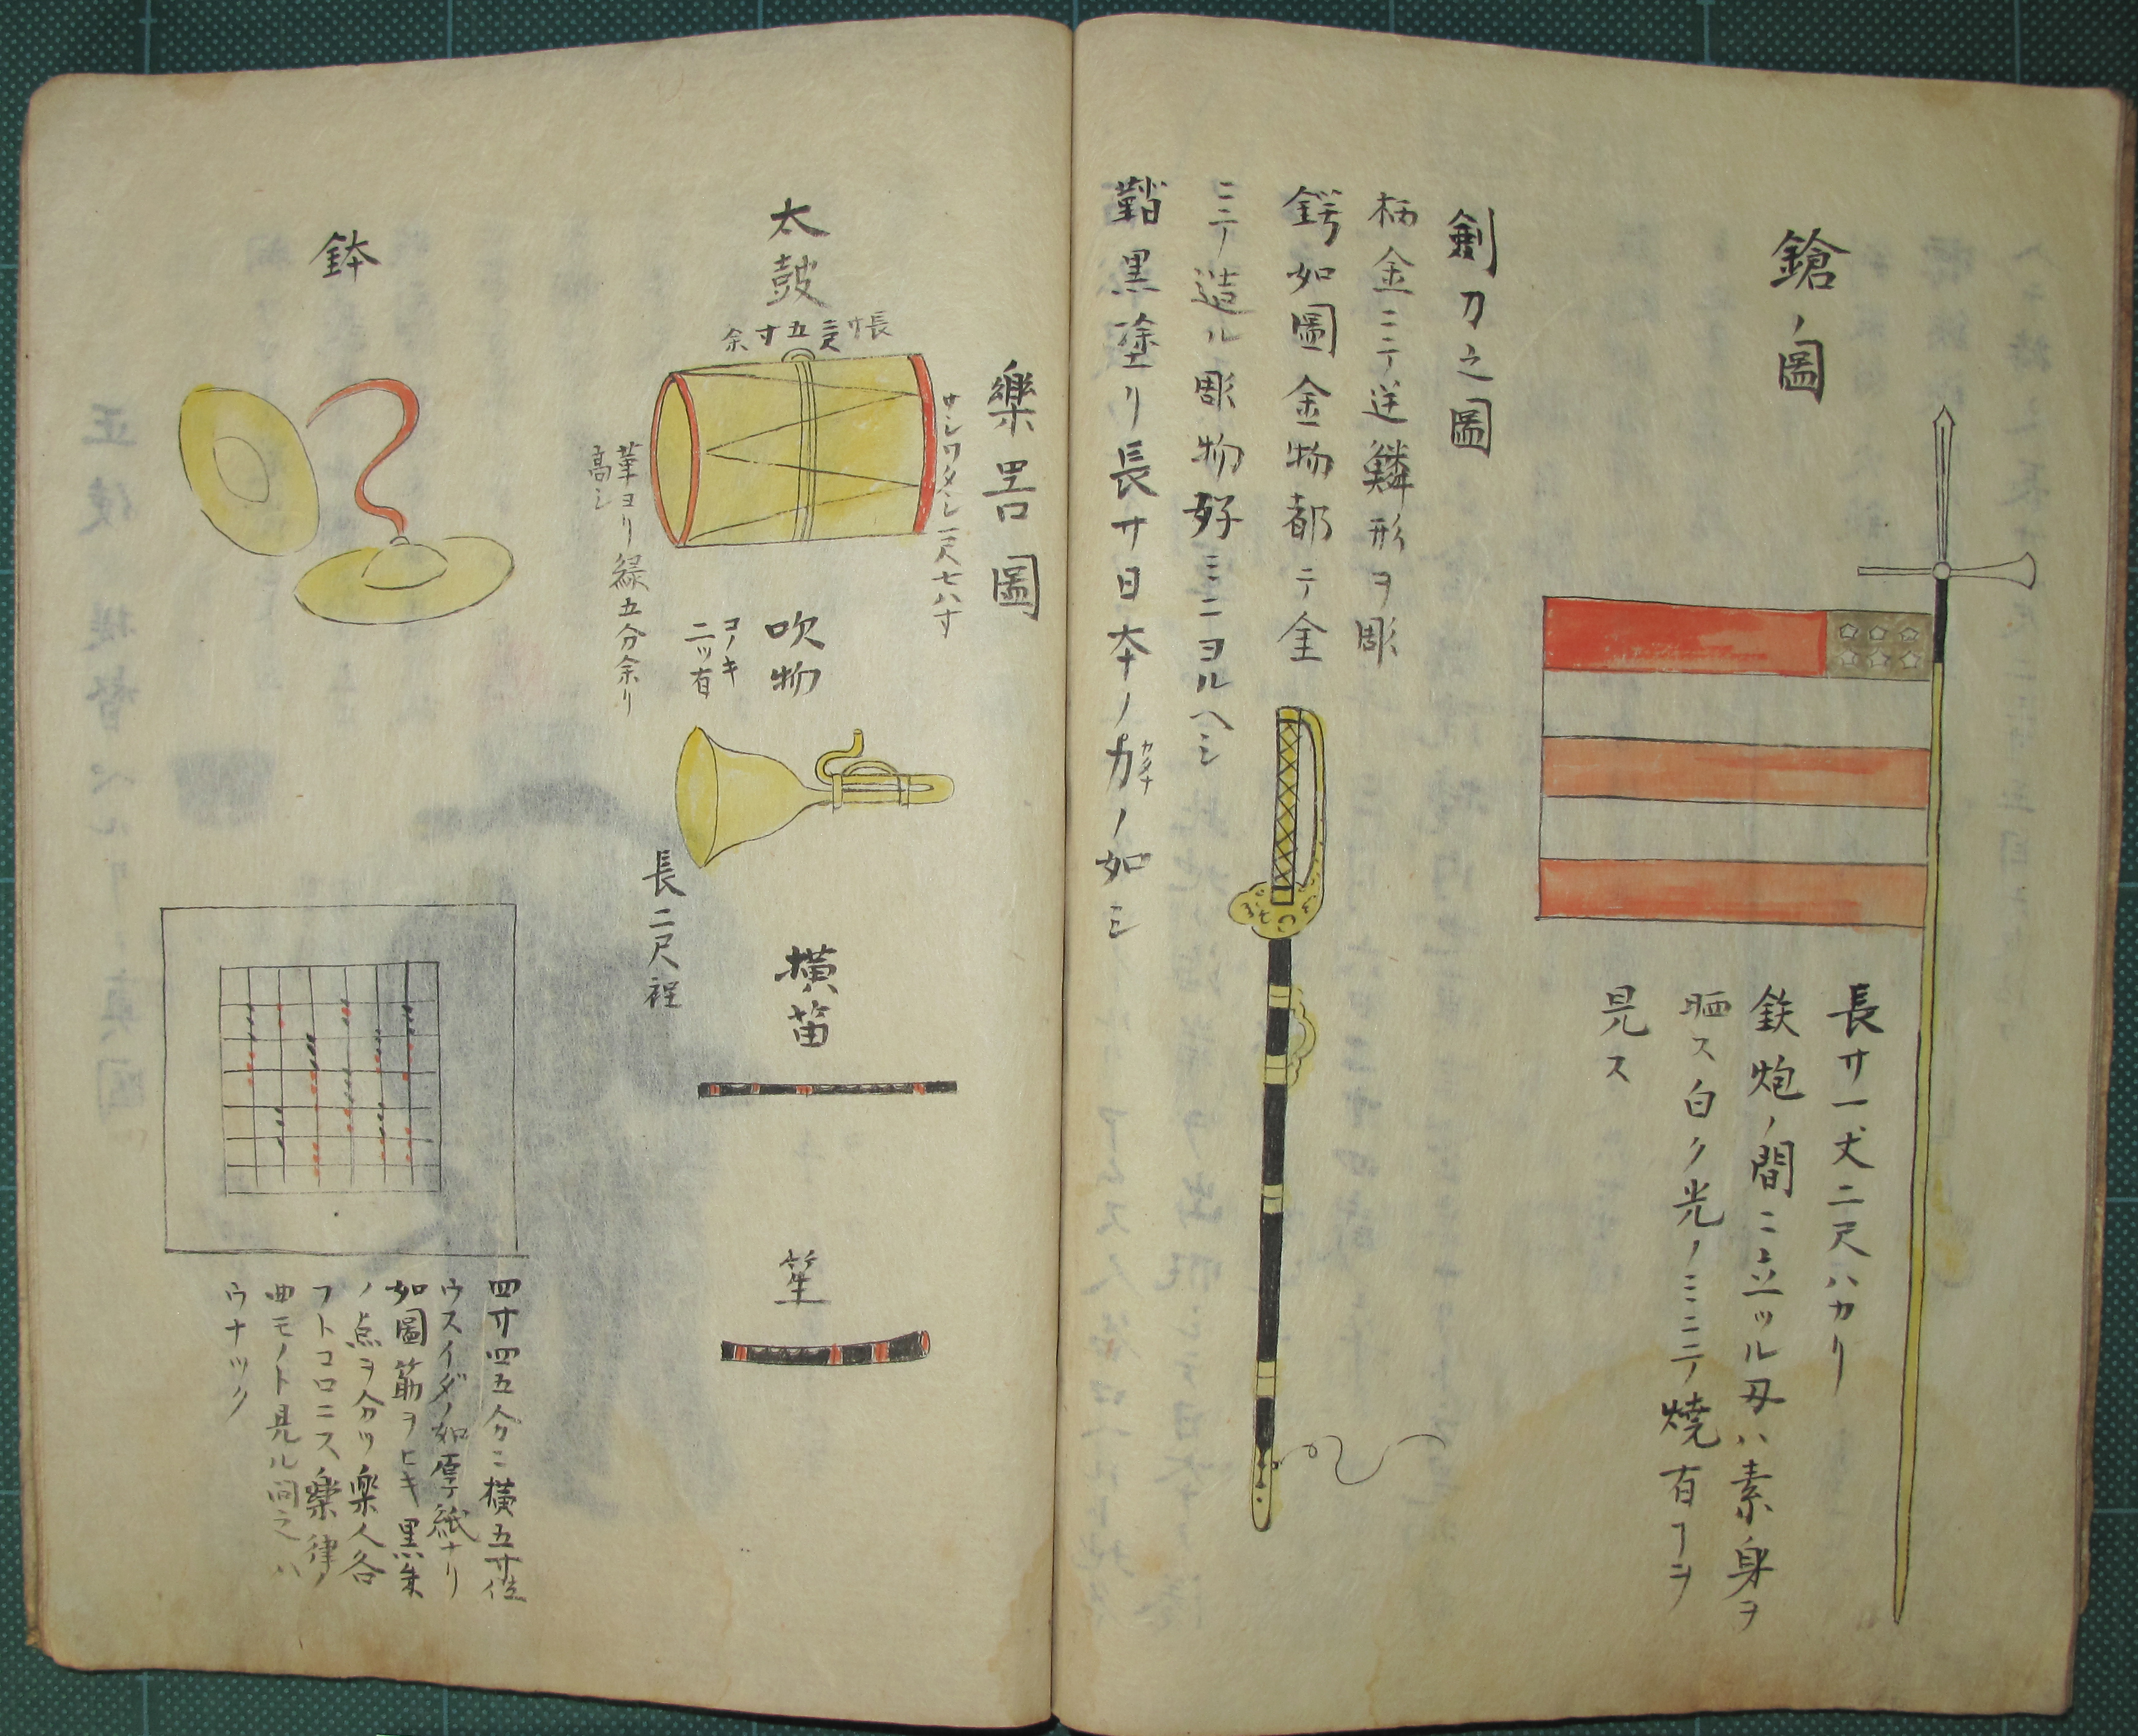 鎗ノ圖
長サ一丈二尺ハカリ
鉄炮ノ間ニ立ツル刄ハ素身ヲ
晒ス白ク光ノミニテ焼有ヿヲ
見ス
劍刀之圖
柄金ニテ逆鱗形ヲ彫
鍔如圖金物都テ金
ニテ造ル彫物好ミニヨルヘシ
鞘黒塗リ長サ日本ノ刀ノ如シ
カタナ
樂器圖
太鼓
長サ二尺五寸余
サシワタシ一尺七八寸
革ヨリ縁五分余リ
高シ
吹物
コノキ
二ツ有
長二尺程
横笛
笙
鉢
四寸四五分ニ横五寸位
ウスイダノ如厚紙ナリ
如圖筋ヲヒキ黒朱
ノ点ヲ分ツ樂人各
フトコロニス樂律ノ
曲モノト見ル問之ハ
ウナツク